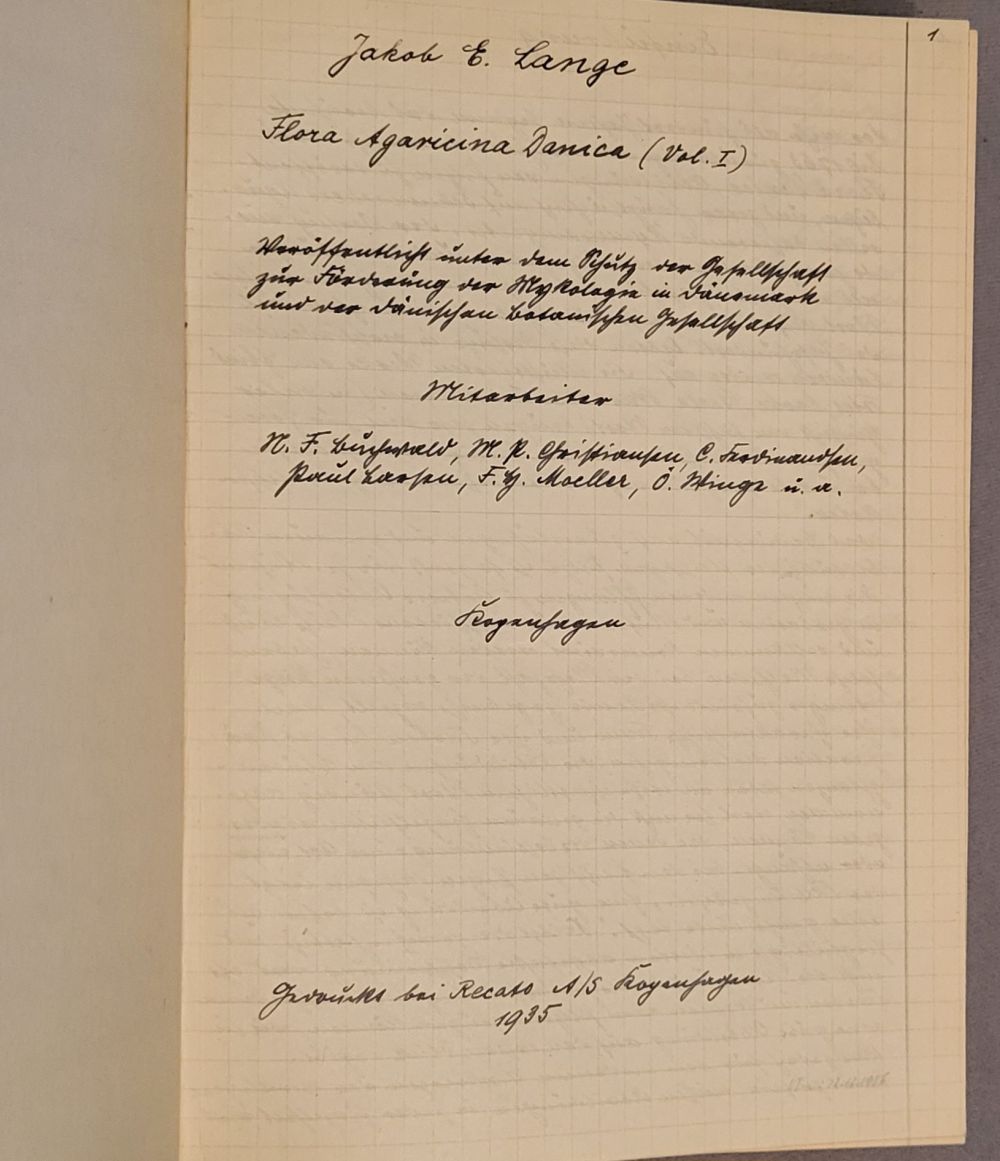 1
Jakob E. Lange
Flora Agaricina Danica (Vol. I)
Veröffentlicht unter dem Schutz der Gesellschaft
zur Förderung der Mykologie in Dänemark
und der dänischen botanischen Gesellschaft
Mitarbeiter
N. F. Buchwald, M. P. Christiansen, C. Ferdinandsen,
Paul Larsen, F. H. Moeller, Ö. Winge u. a.
Kopenhagen
Gedruckt bei Recato A/S Kopenhagen
1935